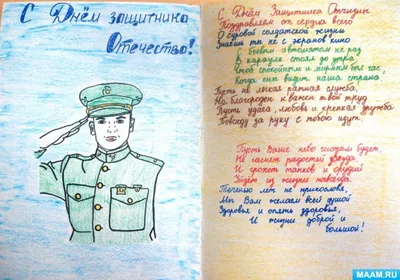 С Днём защитника
Отечества!
С Днем Защитника Отчизны
Поздравляем от сердца всего
О суровой солдатской жизни
Знаешь ты не с экранов кино
С боевым автоматом не раз
В карауле стоял до утра,
Чтоб спокойным и мирным был час,
Когда сны видит наша страна,
Пусть не легка ратная служба,
Но благороден и важен твой труд
Пусть удача, любовь и крепкая дружба
Повсюду за руку с тобою идут.
Пусть Ваше небо чистым будет,
Не гаснет радости звезда,
И грохот танков и орудий
Уйдет из жизни навсегда.
Точную лет не приколова,
Мы Вам желаем всей душой
Здоровья и опять здоровья,
И жизни доброй и
большой!
MAAM.RU